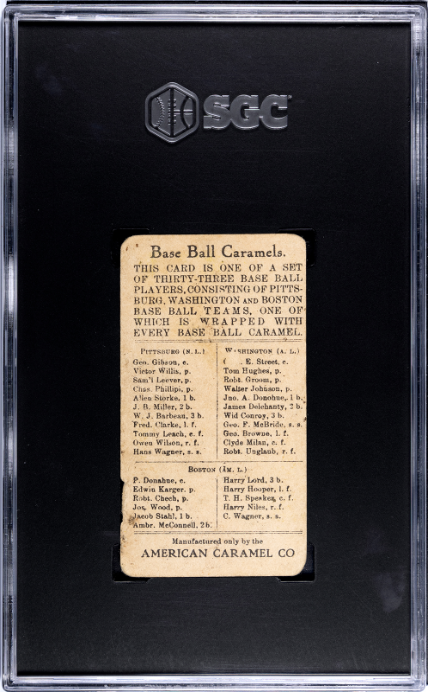 SGC
Base Ball Caramels.
THIS CARD IS ONE OF A SET
OF THIRTY-THREE BASE BALL
PLAYERS, CONSISTING OF PITTS-
BURG, WASHINGTON AND BOSTON
BASE BALL TEAMS, ONE OF
WHICH IS WRAPPED WITH
EVERY BASE BALL CARAMEL.
PITTSBURG (N. L.)
Geo. Gibson, c.
Victor Willis, p.
Sam'l Leever, p.
Chas. Phillipi, p.
Allen Storke, 1 b.
J. B. Miller, 2 b.
W. J. Barbeau, 3 b.
Fred. Clarke, l. f.
Tommy Leach, c. f.
Owen Wilson, r. f.
Hans Wagner, s. s.
WASHINGTON (A. L.)
E. Street, c.
Tom Hughes, p.
Robt. Groom, p.
Walter Johnson, p.
Jno. A. Donohue, 1 b.
James Delehanty, 2 b.
Wid Conroy, 3 b.
Geo. F. McBride, s. s.
Geo. Browne, l. f.
Clyde Milan, c. f.
Robt. Unglaub, r. f.
BOSTON (AM. L.)
P. Donahue, c.
Edwin Karger, p.
Robt. Chech, p.
Joe Wood, p.
Jacob Stahl, 1 b.
Ambr. McConnell, 2 b.
Harry Lord, 3 b.
Harry Hooper, l. f.
T. H. Speakes, c. f.
Harry Niles, r. f.
C. Wagner, s. s.
Manufactured only by the
AMERICAN CARAMEL CO